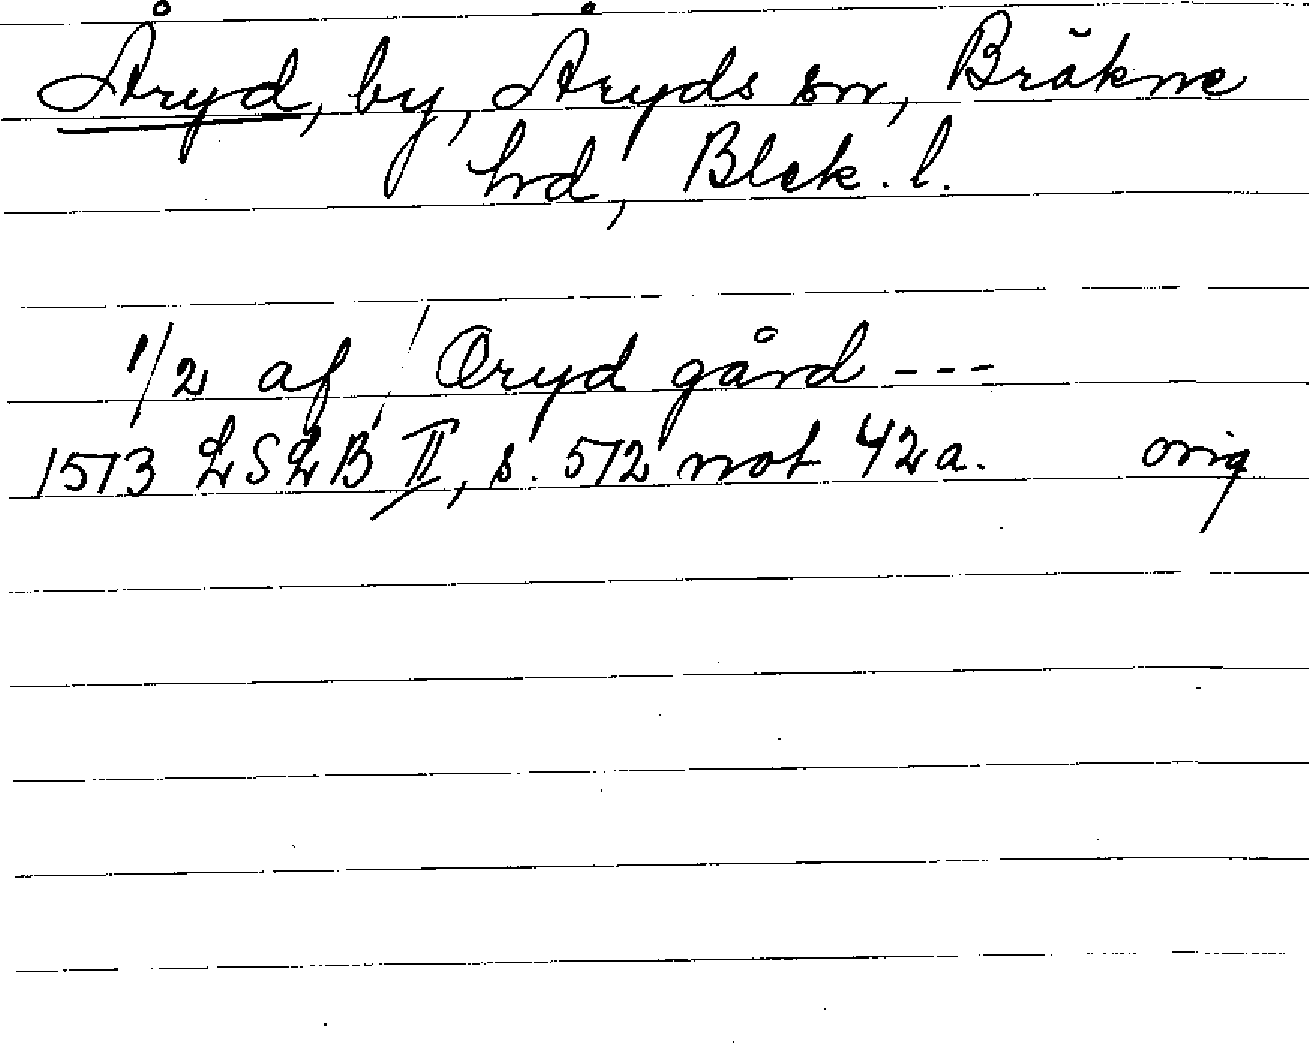 Åryd, by, Åryds sn, Bräkne
hd, Blek. l.
1/2 af / Oryd gård ---
1513 LSLB II, s. 572 not 42a. orig